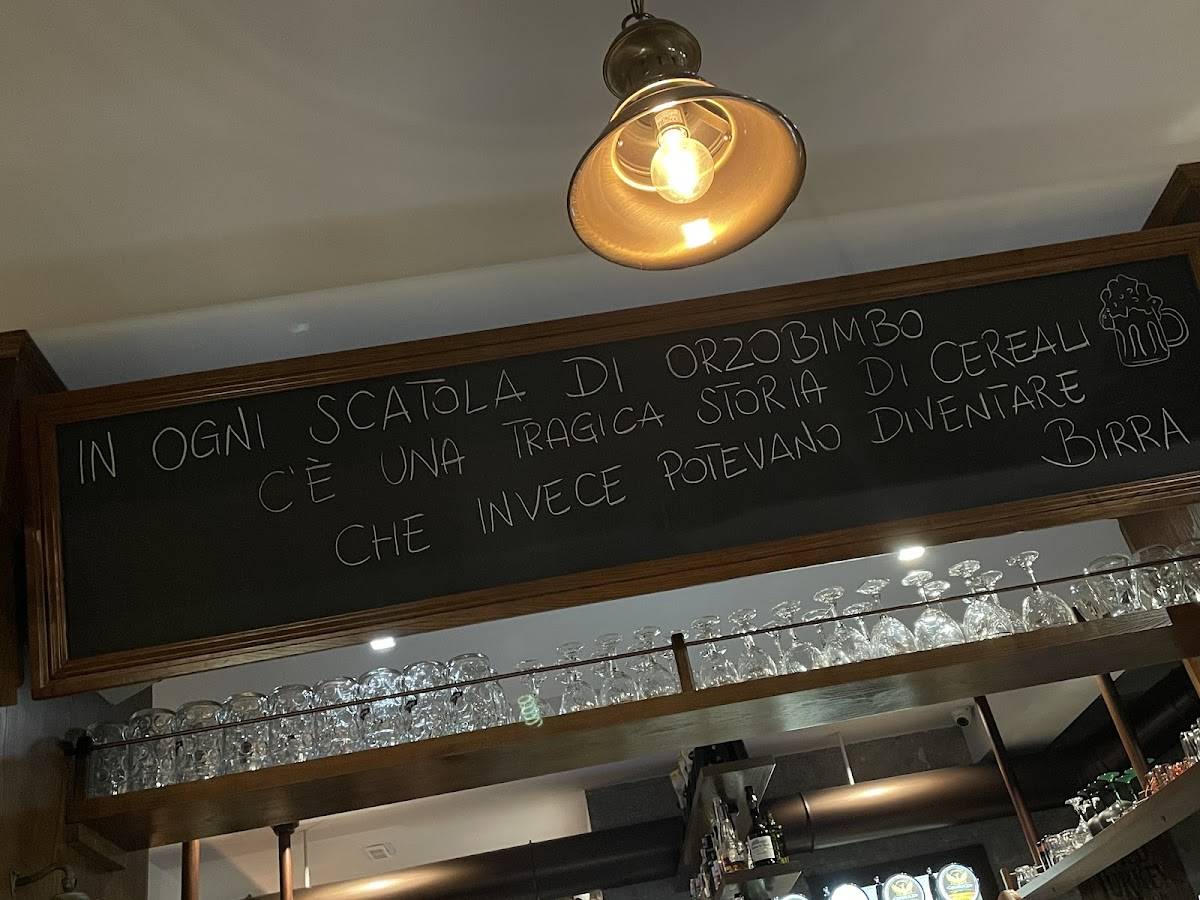 IN OGNI SCATOLA DI ORZOBIMBO
C'È UNA TRAGICA STORIA DI CEREALI
CHE INVECE POTEVANO DIVENTARE
BIRRA